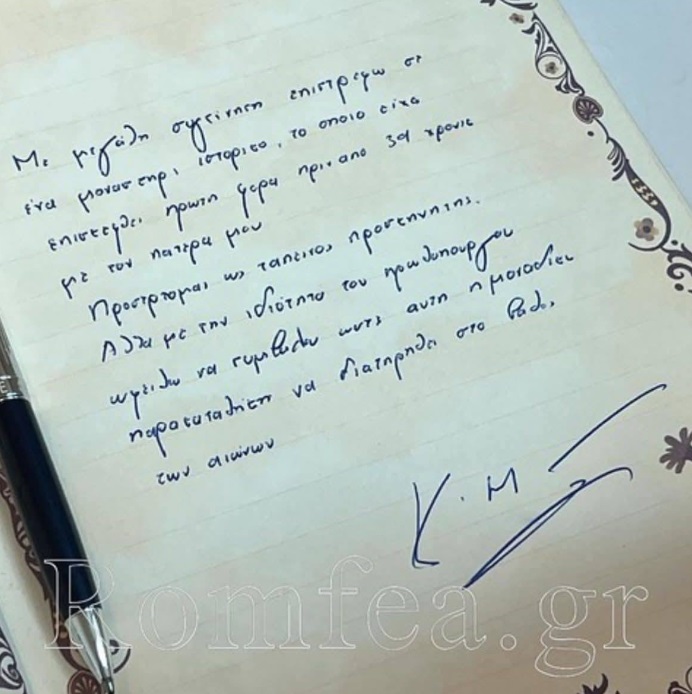 Με μεγάλη συγκίνηση επιστρέφω σε
ένα μοναστήρι, ιστορικό, το οποίο είχα
επισκεφθεί πρώτη φορά πριν από 39 χρόνια
με τον πατέρα μου
Προσέρχομαι ως ταπεινός προσκυνητής.
Αλλά με την ιδιότητα του πρωθυπουργού
οφείλω να συμβάλω ώστε αυτή η μοναδική
παρακαταθήκη να διατηρηθεί στο βάθος
των αιώνων
Κ. Μ
Romfea.gr